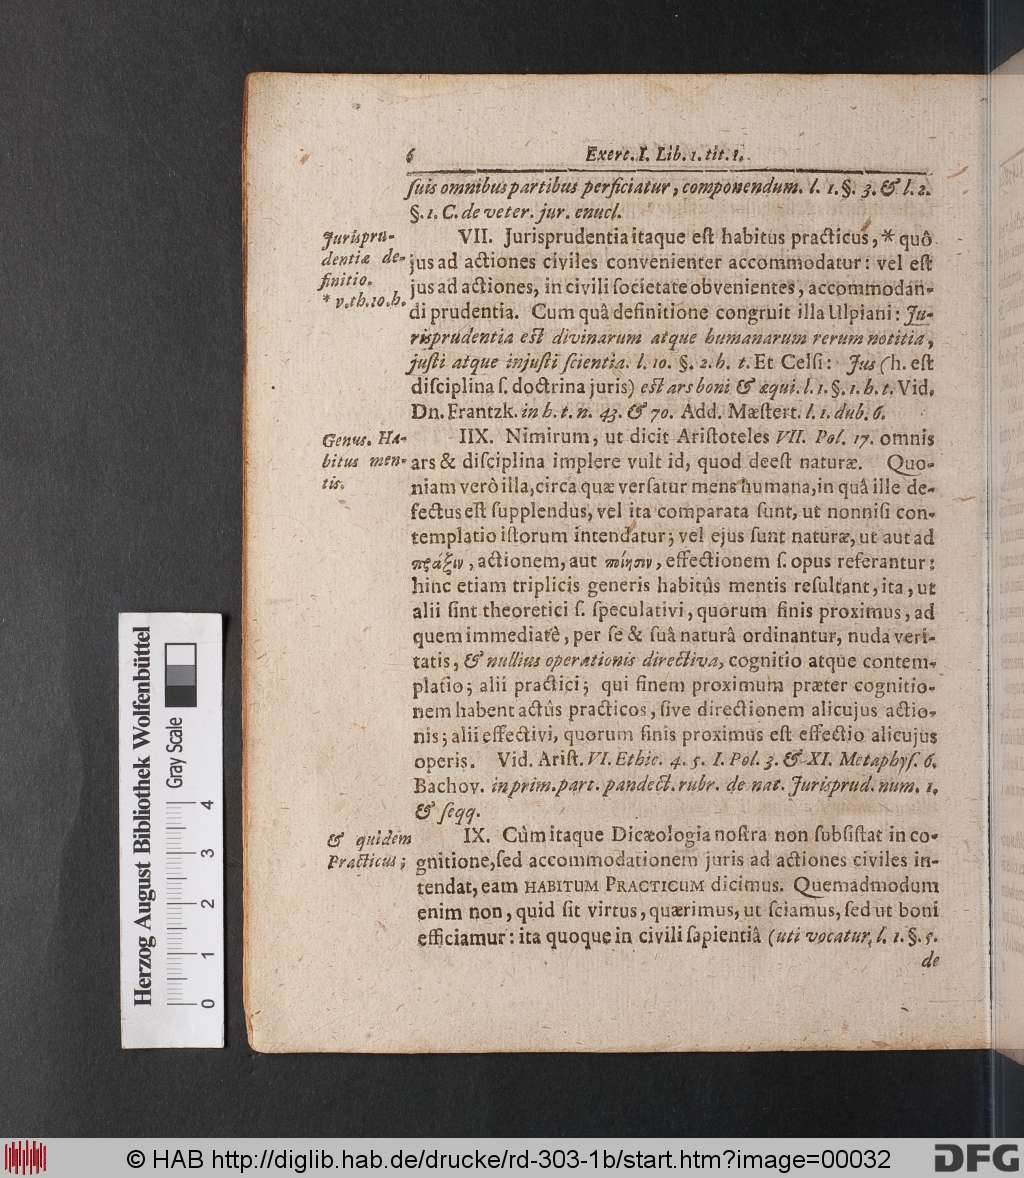 6 Exerc. I. Lib. 1. tit. 1.
ſuis omnibus partibus perficiatur, componendum. l. 1. §. 3. & l. 2.
§. 1. C. de veter. jur. enucl.
Jurispru-
dentiæ de-
finitio.
* v. th. 10. h.
VII. Jurisprudentia itaque eſt habitus practicus, * quô
jus ad actiones civiles convenienter accommodatur: vel eſt
jus ad actiones, in civili ſocietate obvenientes, accommodan-
di prudentia. Cum quâ definitione congruit illa Ulpiani: Ju-
risprudentia eſt divinarum atque humanarum rerum notitia,
juſti atque injuſti ſcientia. l. 10. §. 2. h. t. Et Celſi: Jus (h. eſt
diſciplina ſ. doctrina juris) eſt ars boni & æqui. l. 1. §. 1. h. t. Vid.
Dn. Frantzk. in h. t. n. 43. & 70. Add. Mæſtert. l. 1. dub. 6.
Genus. Ha-
bitus men-
tis.
IIX. Nimirum, ut dicit Ariſtoteles VII. Pol. 17. omnis
ars & diſciplina implere vult id, quod deeſt naturæ. Quo-
niam verò illa, circa quæ verſatur mens humana, in quâ ille de-
fectus eſt ſupplendus, vel ita comparata ſunt, ut nonniſi con-
templatio iſtorum intendatur; vel ejus ſunt naturæ, ut aut ad
πρᾶξιν, actionem, aut ποίησιν, effectionem ſ. opus referantur:
hinc etiam triplicis generis habitûs mentis reſultant, ita, ut
alii ſint theoretici ſ. ſpeculativi, quorum finis proximus, ad
quem immediatè, per ſe & ſuâ naturâ ordinantur, nuda veri-
tatis, & nullius operationis directiva, cognitio atque contem-
platio; alii practici; qui finem proximum præter cognitio-
nem habent actûs practicos, ſive directionem alicujus actio-
nis; alii effectivi, quorum finis proximus eſt effectio alicujus
operis. Vid. Ariſt. VI. Ethic. 4. 5. I. Pol. 3. & XI. Metaphyſ. 6.
Bachov. in prim. part. pandect. rubr. de nat. Jurisprud. num. 1.
& ſeqq.
& quidem
Practicus;
IX. Cùm itaque Dicæologia noſtra non ſubſiſtat in co-
gnitione, ſed accommodationem juris ad actiones civiles in-
tendat, eam HABITUM PRACTICUM dicimus. Quemadmodum
enim non, quid ſit virtus, quærimus, ut ſciamus, ſed ut boni
efficiamur: ita quoque in civili ſapientiâ (uti vocatur, l. 1. §. 5.
de
Herzog August Bibliothek Wolfenbüttel
Gray Scale
0 1 2 3 4
© HAB http://diglib.hab.de/drucke/rd-303-1b/start.htm?image=00032
DFG